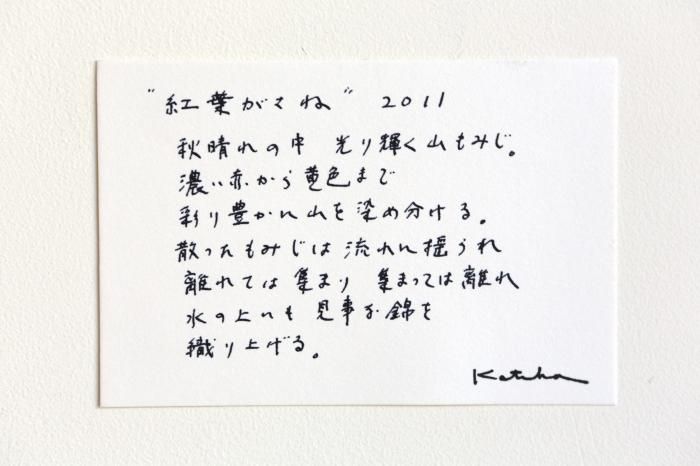 "紅葉がさね" 2011
秋晴れの中 光り輝く山もみじ。
濃い赤から黄色まで
彩り豊かに山を染め分ける。
散ったもみじは流れに揺られ
離れては集まり 集まっては離れ
水の上にも見事な錦を
織り上げる。